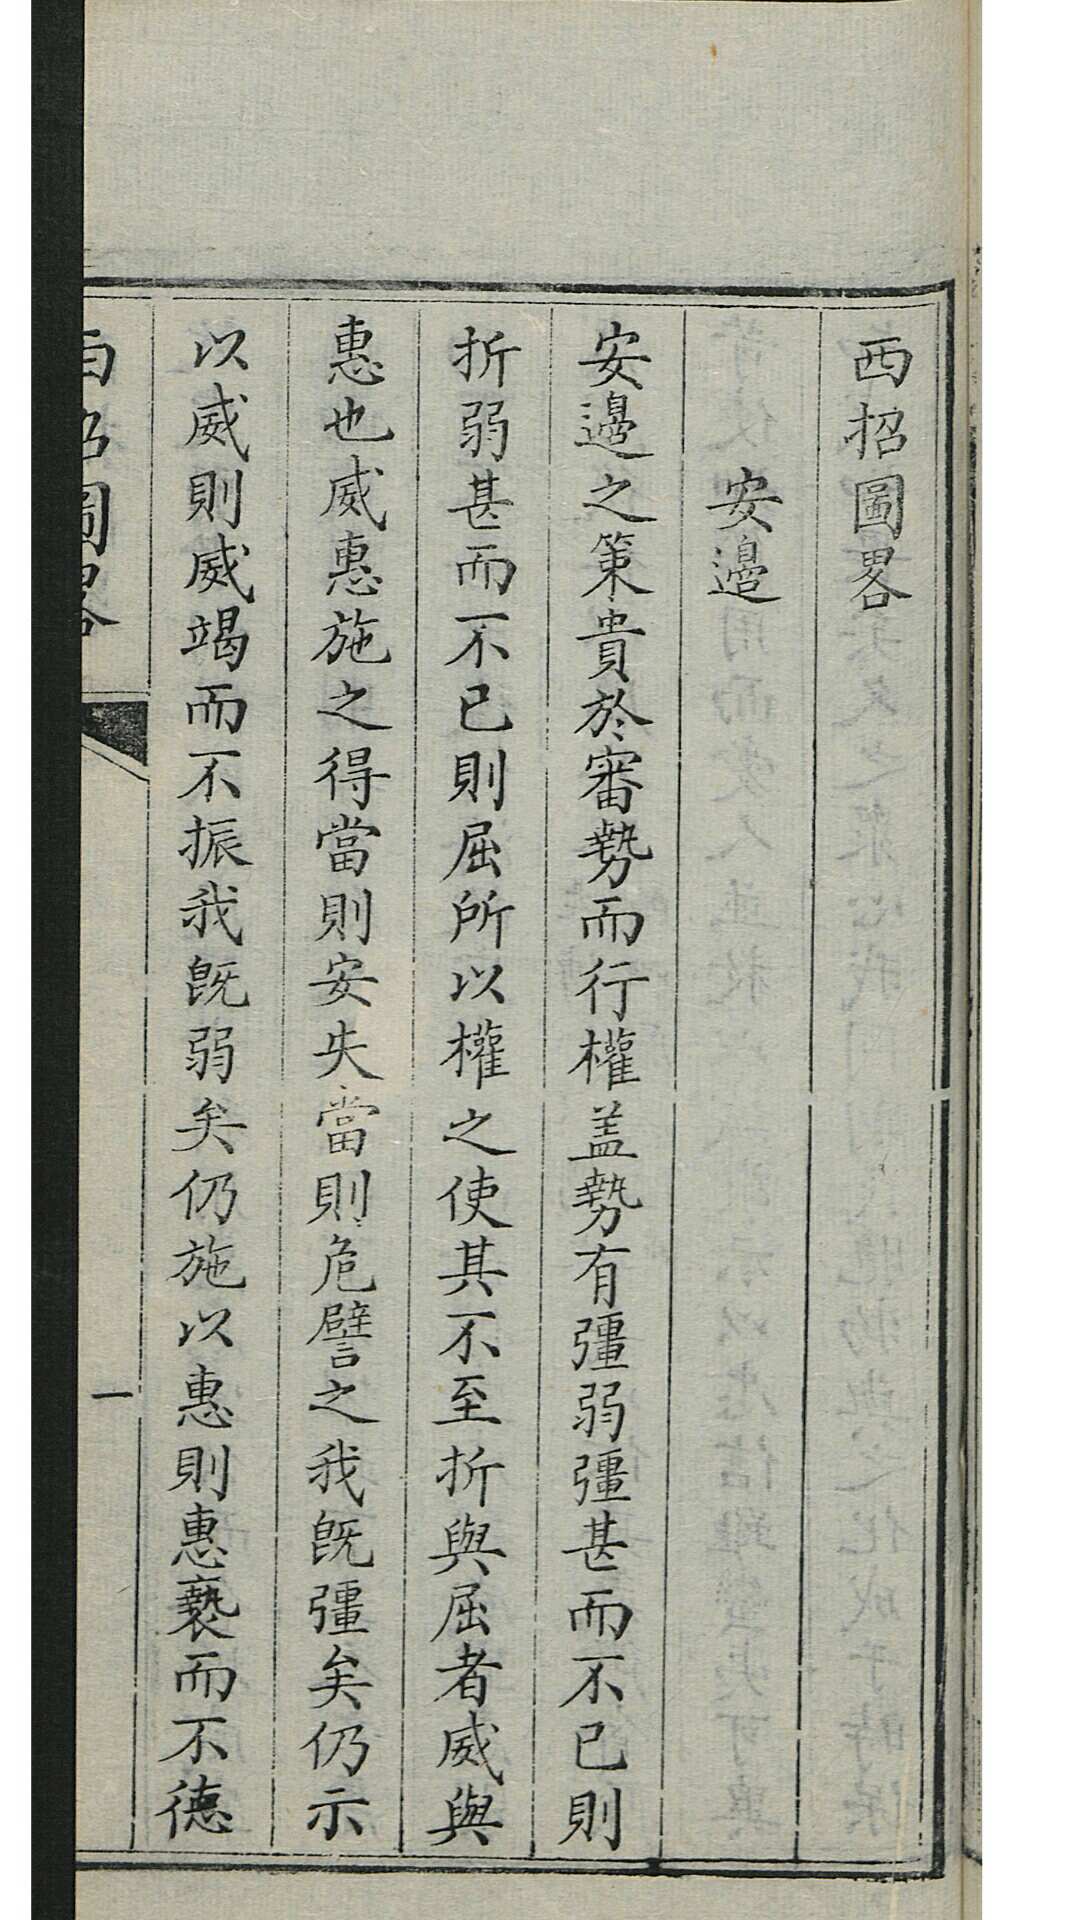 西招圖畧
安邊
安邊之策貴於審勢而行權盖勢有彊弱彊甚而不已則
折弱甚而不已則屈所以權之使其不至折與屈者威與
惠也威惠施之得當則安失當則危譬之我旣彊矣仍示
以威則威竭而不振我旣弱矣仍施以惠則惠褻而不德
西招圖畧
一